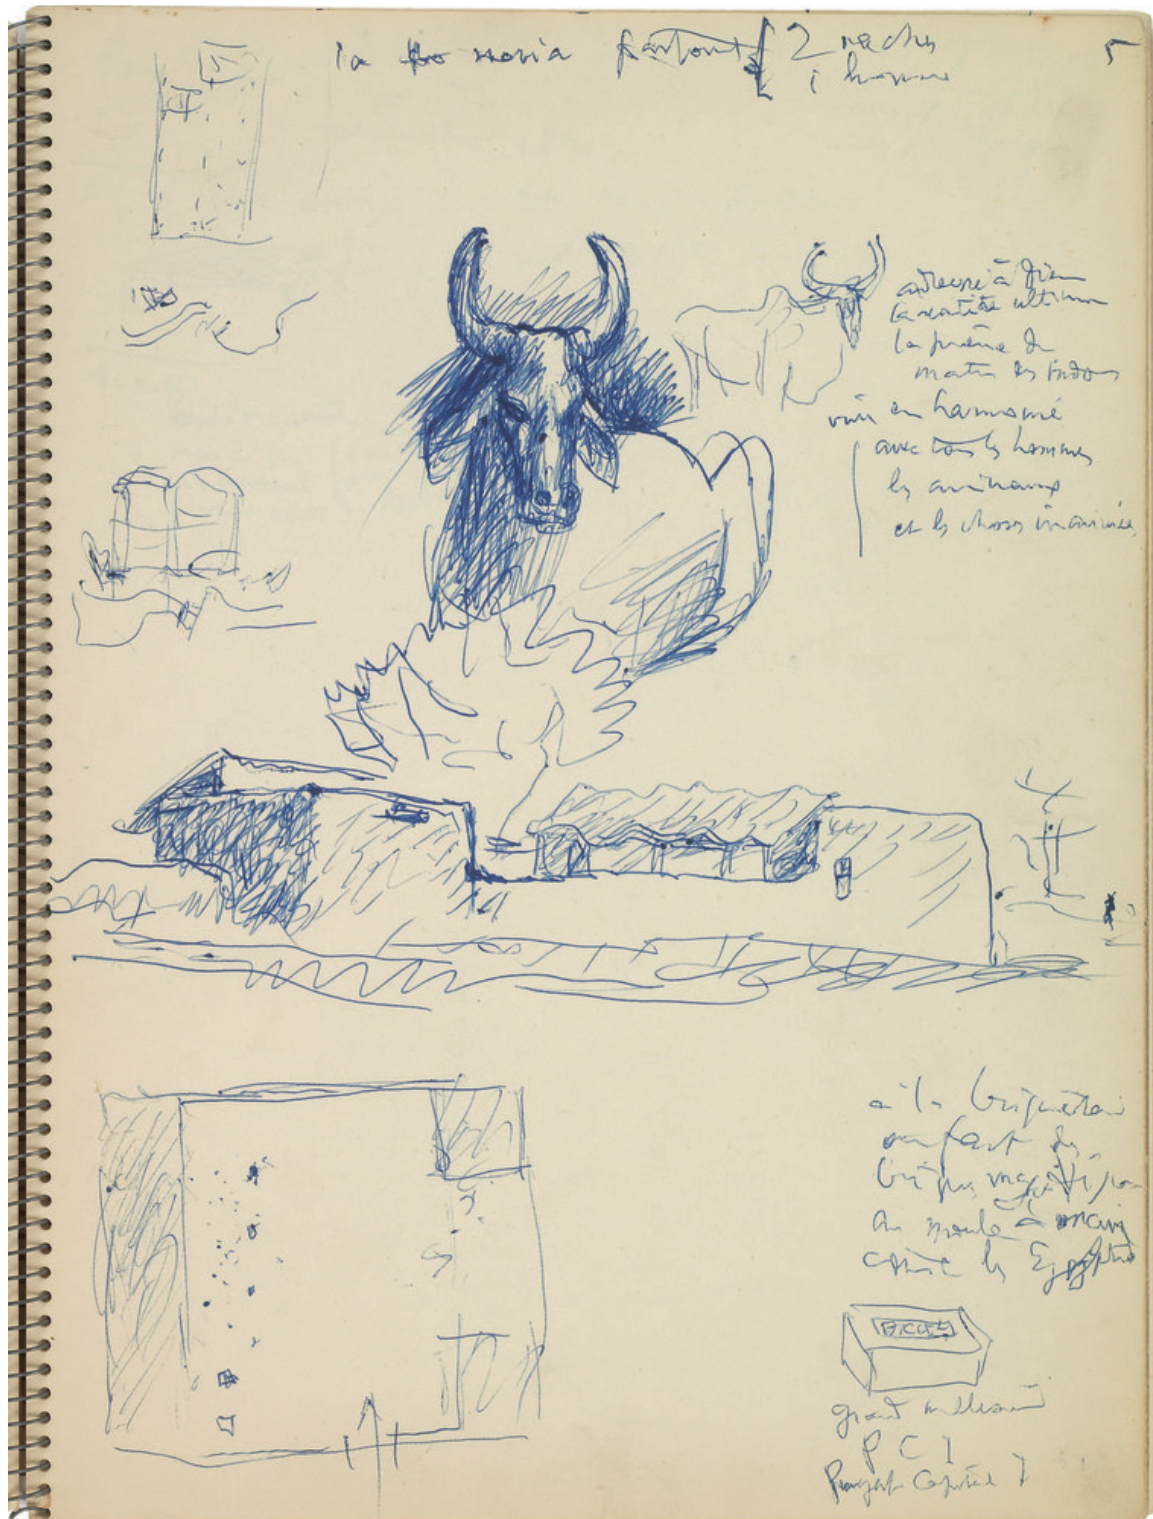 la noria partout { 2 vaches 5
1 homme
adressé à Dieu
ultime
la prière du
matin des Indous
vivre en harmonie
avec tous les hommes
les animaux
et les choses inanimées
à la briqueterie
on fait des
briques
au moule à main
comme les Egyptiens
grand
P C I
Punjab Capital I